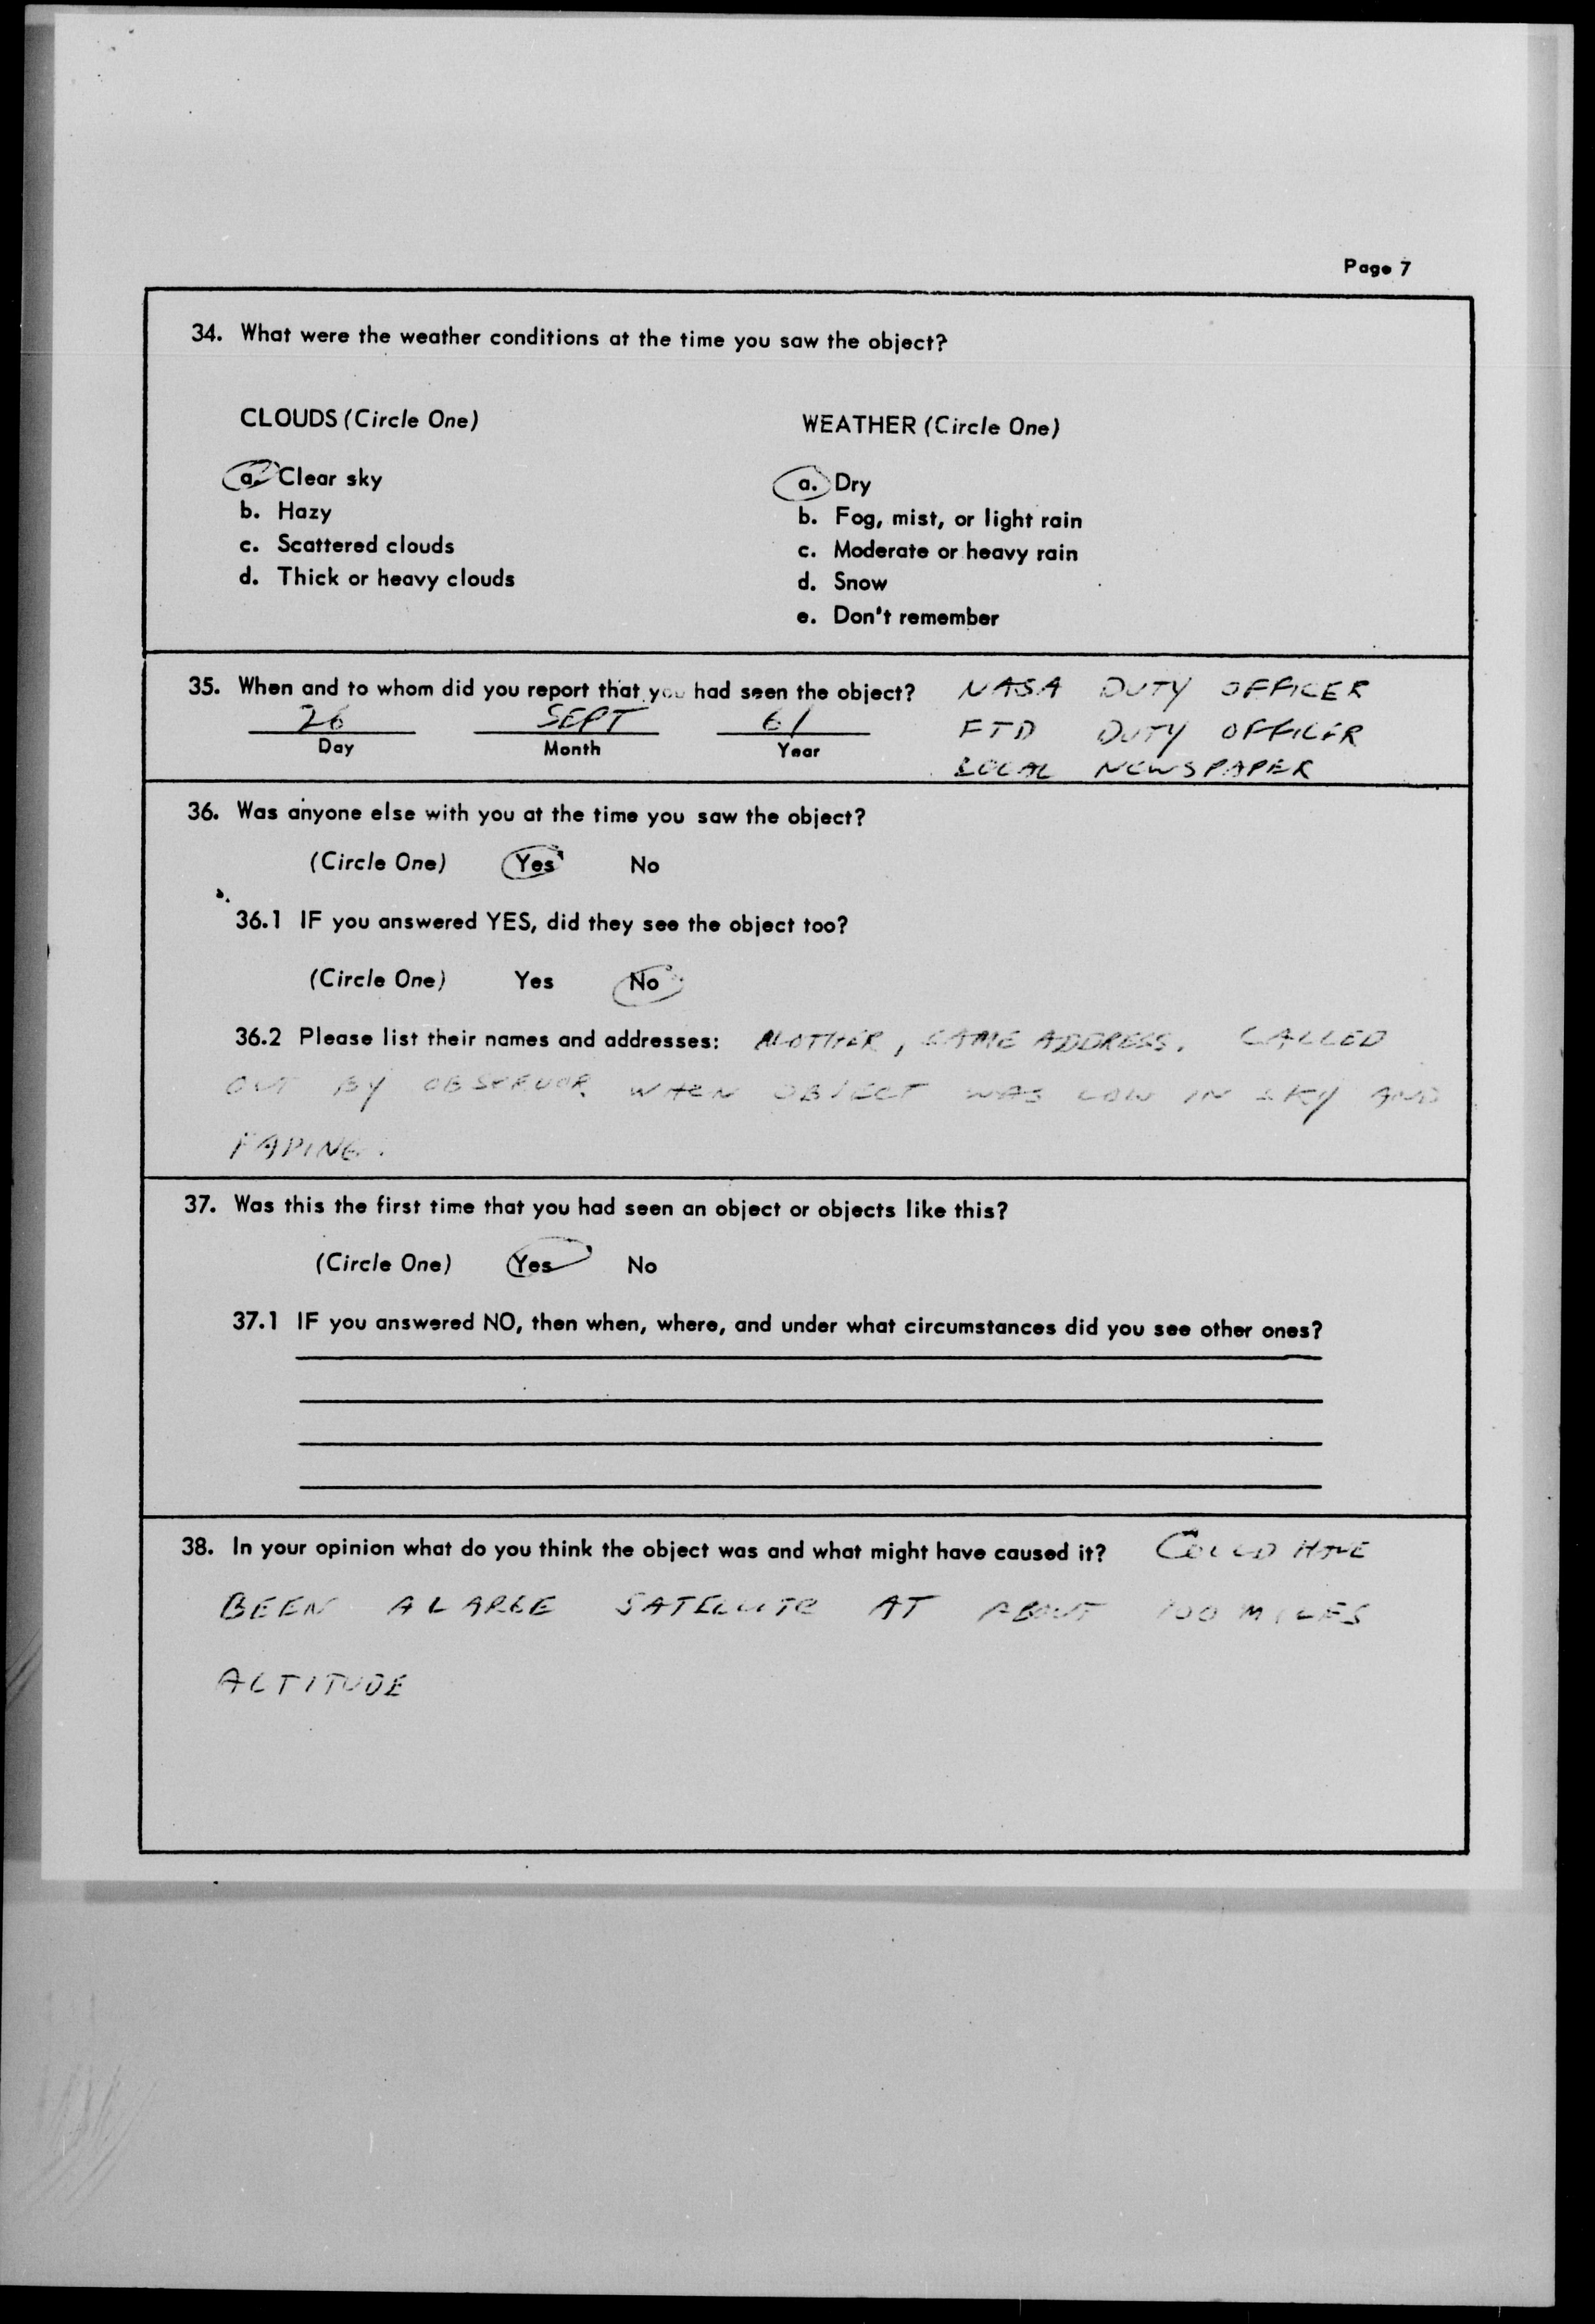 Page 7
34. What were the weather conditions at the time you saw the object?
CLOUDS (Circle One)
WEATHER (Circle One)
a. Clear sky
b. Hazy
c. Scattered clouds
d. Thick or heavy clouds
a. Dry
b. Fog, mist, or light rain
c. Moderate or heavy rain
d. Snow
e. Don't remember
35. When and to whom did you report that you had seen the object?
26 SEPT 61
Day Month Year
NASA DUTY OFFICER
FTD DUTY OFFICER
LOCAL NEWSPAPER
36. Was anyone else with you at the time you saw the object?
(Circle One) Yes No
36.1 IF you answered YES, did they see the object too?
(Circle One) Yes No
36.2 Please list their names and addresses: MOTHER, SAME ADDRESS. CALLED
OUT BY OBSERVOR WHEN OBJECT WAS LOW IN SKY AND
FADING.
37. Was this the first time that you had seen an object or objects like this?
(Circle One) Yes No
37.1 IF you answered NO, then when, where, and under what circumstances did you see other ones?
38. In your opinion what do you think the object was and what might have caused it? COULD HAVE
BEEN A LARGE SATELLITE AT ABOUT 100 MILES
ALTITUDE